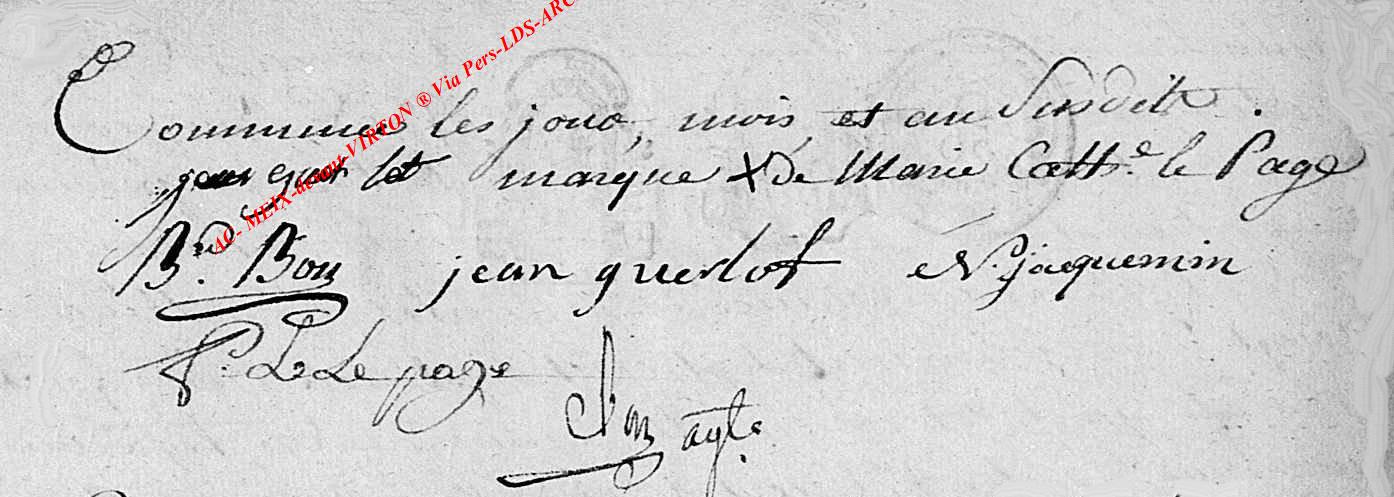 AC- MEIX-devant-VIRTON ® Via Pers-LDS-ARC
Commune les jour, mois, et an Susdits.
marque X de Marie Cath.e le Page
B.rd Bon jean guerlot N. jaquemin
P. Le Lepage
agte.